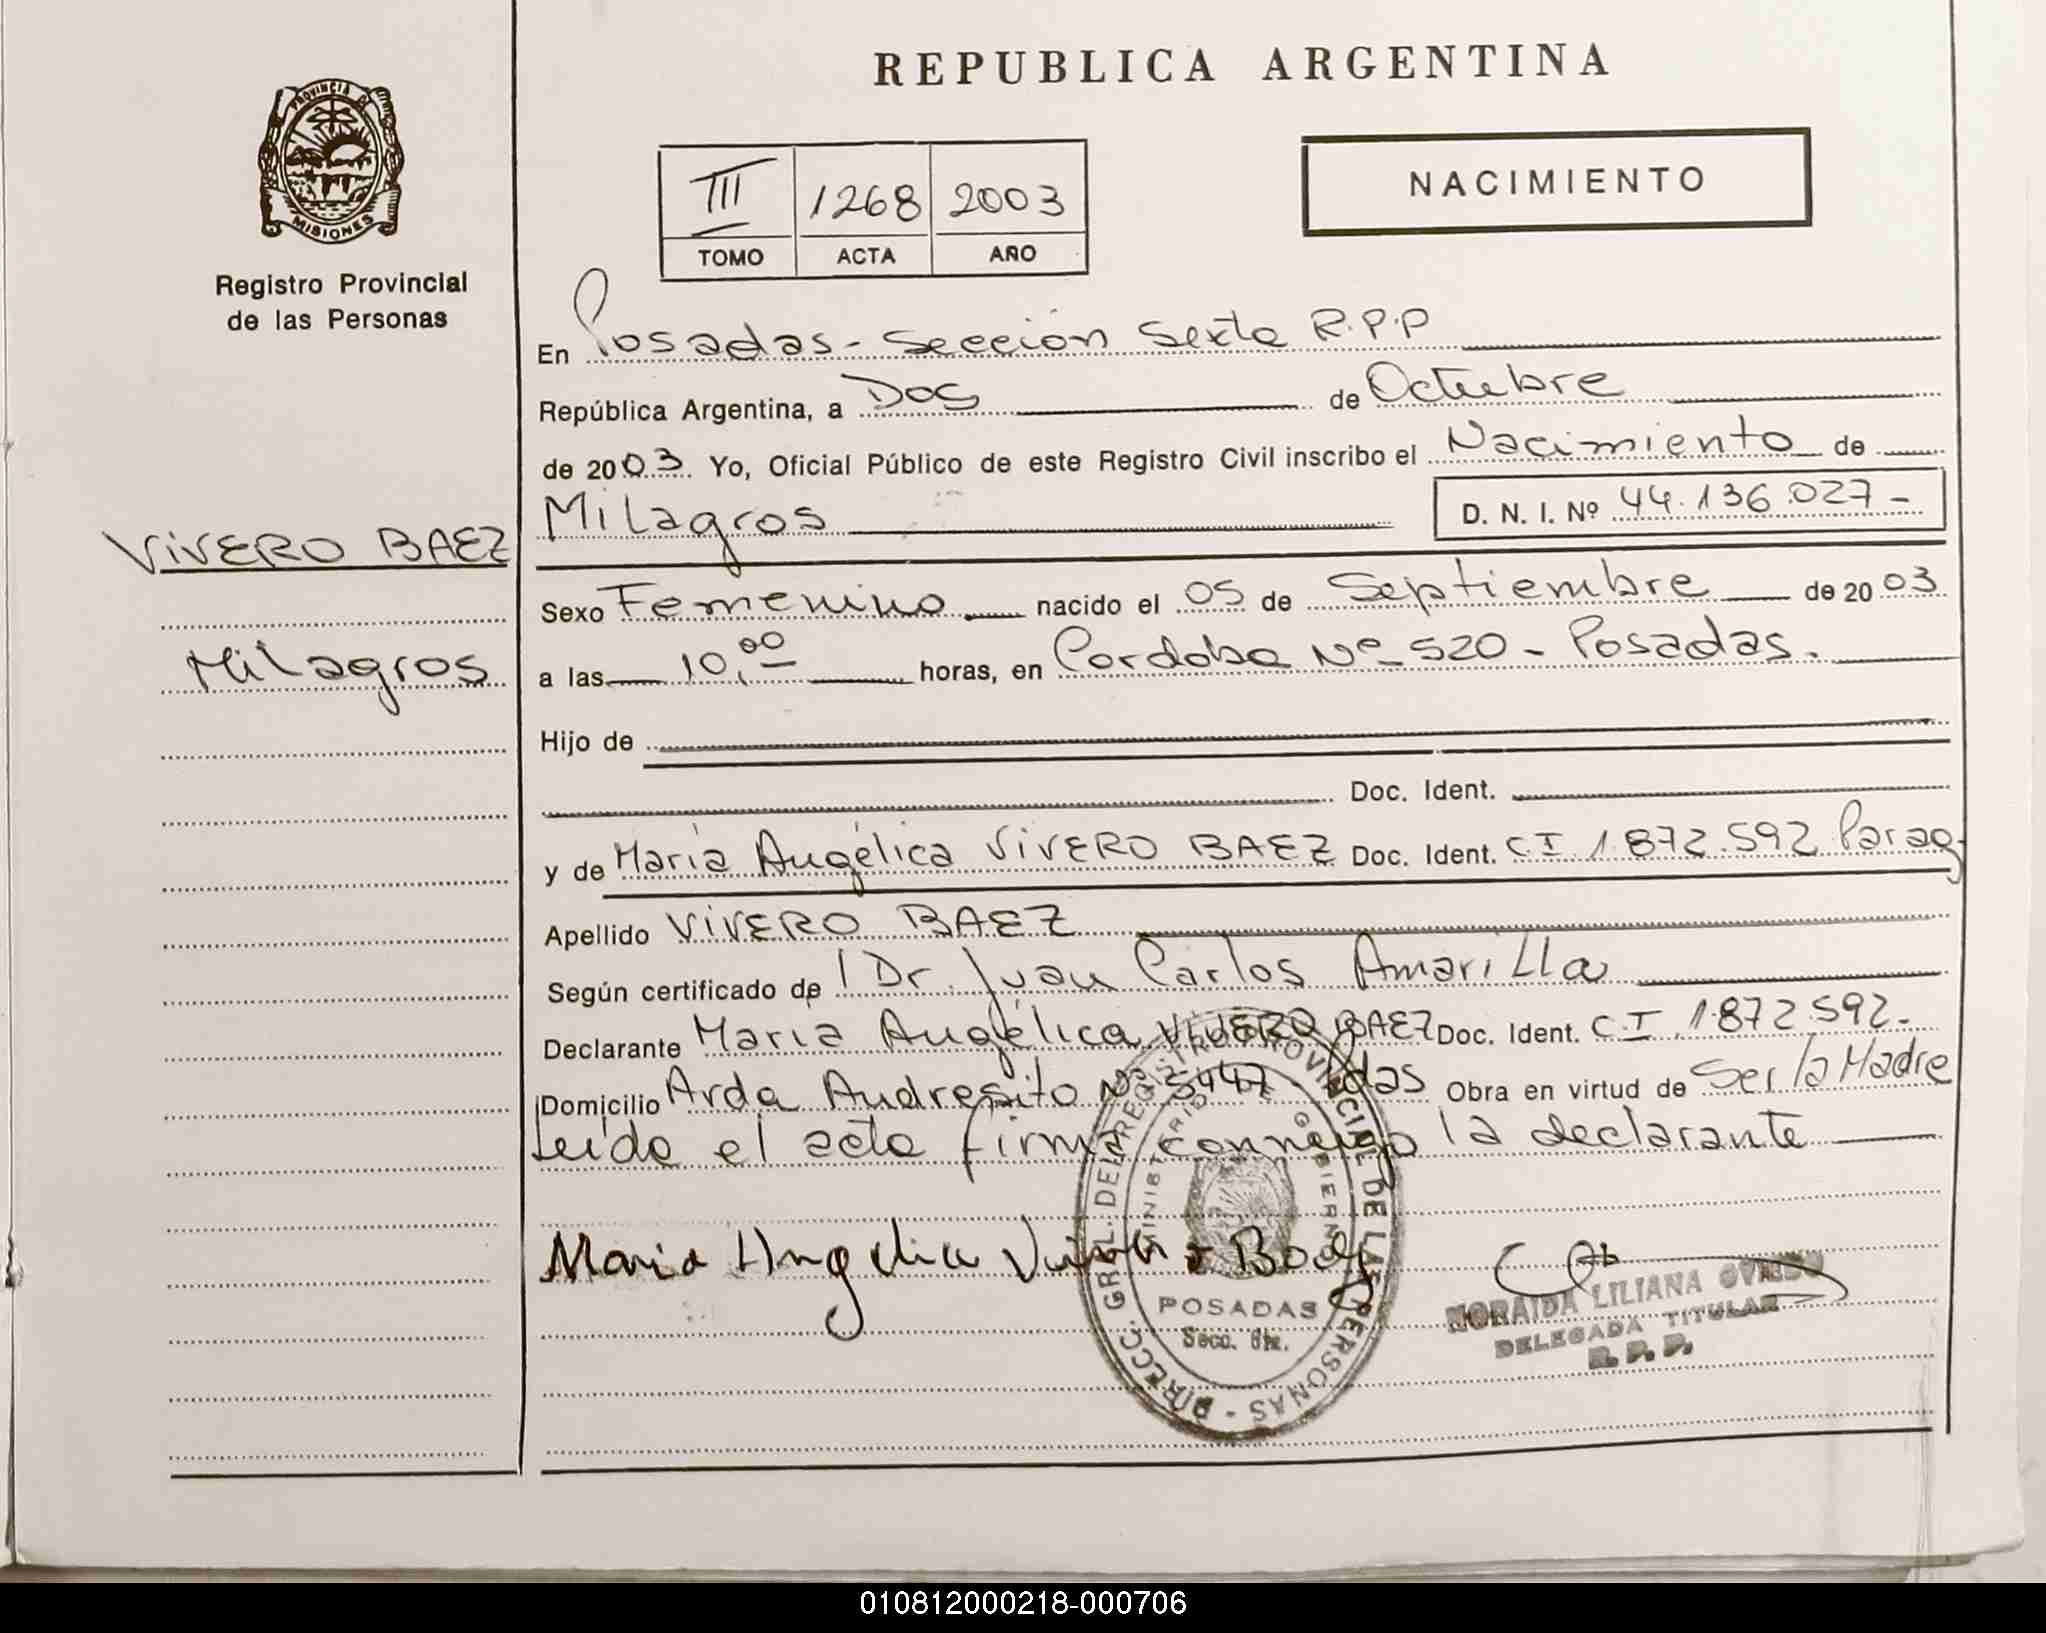 REPUBLICA ARGENTINA
PROVINCIA DE
MISIONES
Registro Provincial
de las Personas
III 1268 2003
TOMO ACTA AÑO
NACIMIENTO
En Posadas - Sección Sexta R.P.P
República Argentina, a Dos de Octubre
de 2003. Yo, Oficial Público de este Registro Civil inscribo el Nacimiento de
Milagros D. N. I. Nº 44.136.027-
VIVERO BAEZ
Milagros
Sexo Femenino nacido el 05 de Septiembre de 2003
a las 10,00 horas, en Cordoba Nº 520 - Posadas.
Hijo de
Doc. Ident.
y de María Angélica VIVERO BAEZ Doc. Ident. C I 1.872.592 Parag
Apellido VIVERO BAEZ
Según certificado de Dr. Juan Carlos Amarilla
Declarante María Angélica VIVERO BAEZ Doc. Ident. C.I. 1.872.592.
Domicilio Avda Andresito Nº 5447 Pdas Obra en virtud de Ser la Madre
Leída el acta firma conmigo la declarante
Maria Angelica Vivero Baez
DIRECC. GRAL. DEL REGISTRO PROVINCIAL DE LAS PERSONAS -
MINISTERIO GOBIERNO
POSADAS
Secc. 6ta.
NORAIDA LILIANA OVIEDO
DELEGADA TITULAR
R. P. P.
010812000218-000706